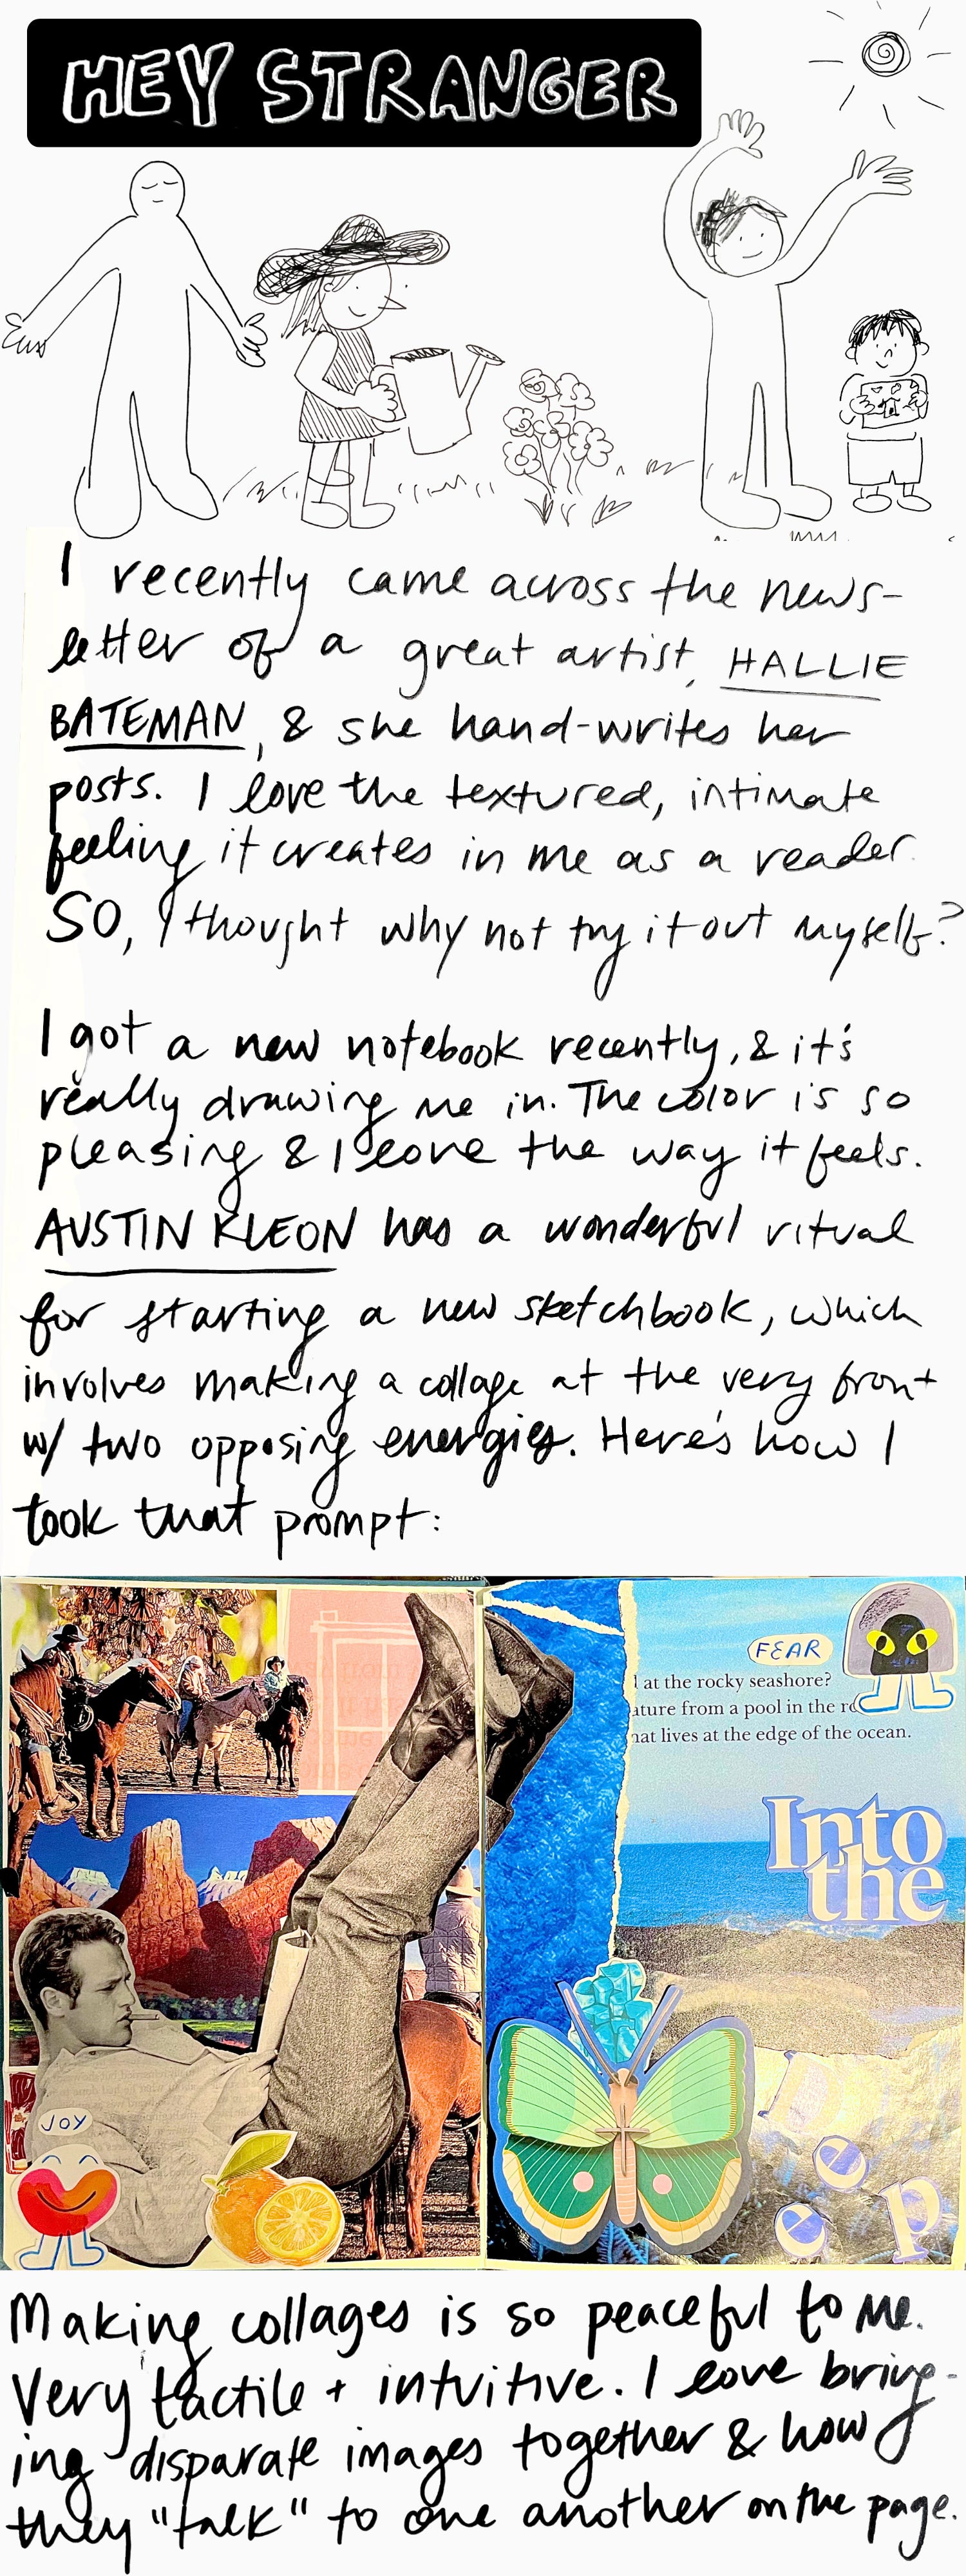 HEY STRANGER
I recently came across the news-
letter of a great artist, HALLIE
BATEMAN, & she hand-writes her
posts. I love the textured, intimate
feeling it creates in me as a reader.
SO, I thought why not try it out myself?
I got a new notebook recently, & it's
really drawing me in. The color is so
pleasing & I love the way it feels.
AUSTIN KLEON has a wonderful ritual
for starting a new sketchbook, which
involves making a collage at the very front
w/ two opposing energies. Here's how I
took that prompt:
JOY
FEAR
at the rocky seashore?
ature from a pool in the
hat lives at the edge of the ocean.
Into
the
D
e
e
p
Making collages is so peaceful to me.
Very tactile + intuitive. I love bring-
ing disparate images together & how
they "talk" to one another on the page.